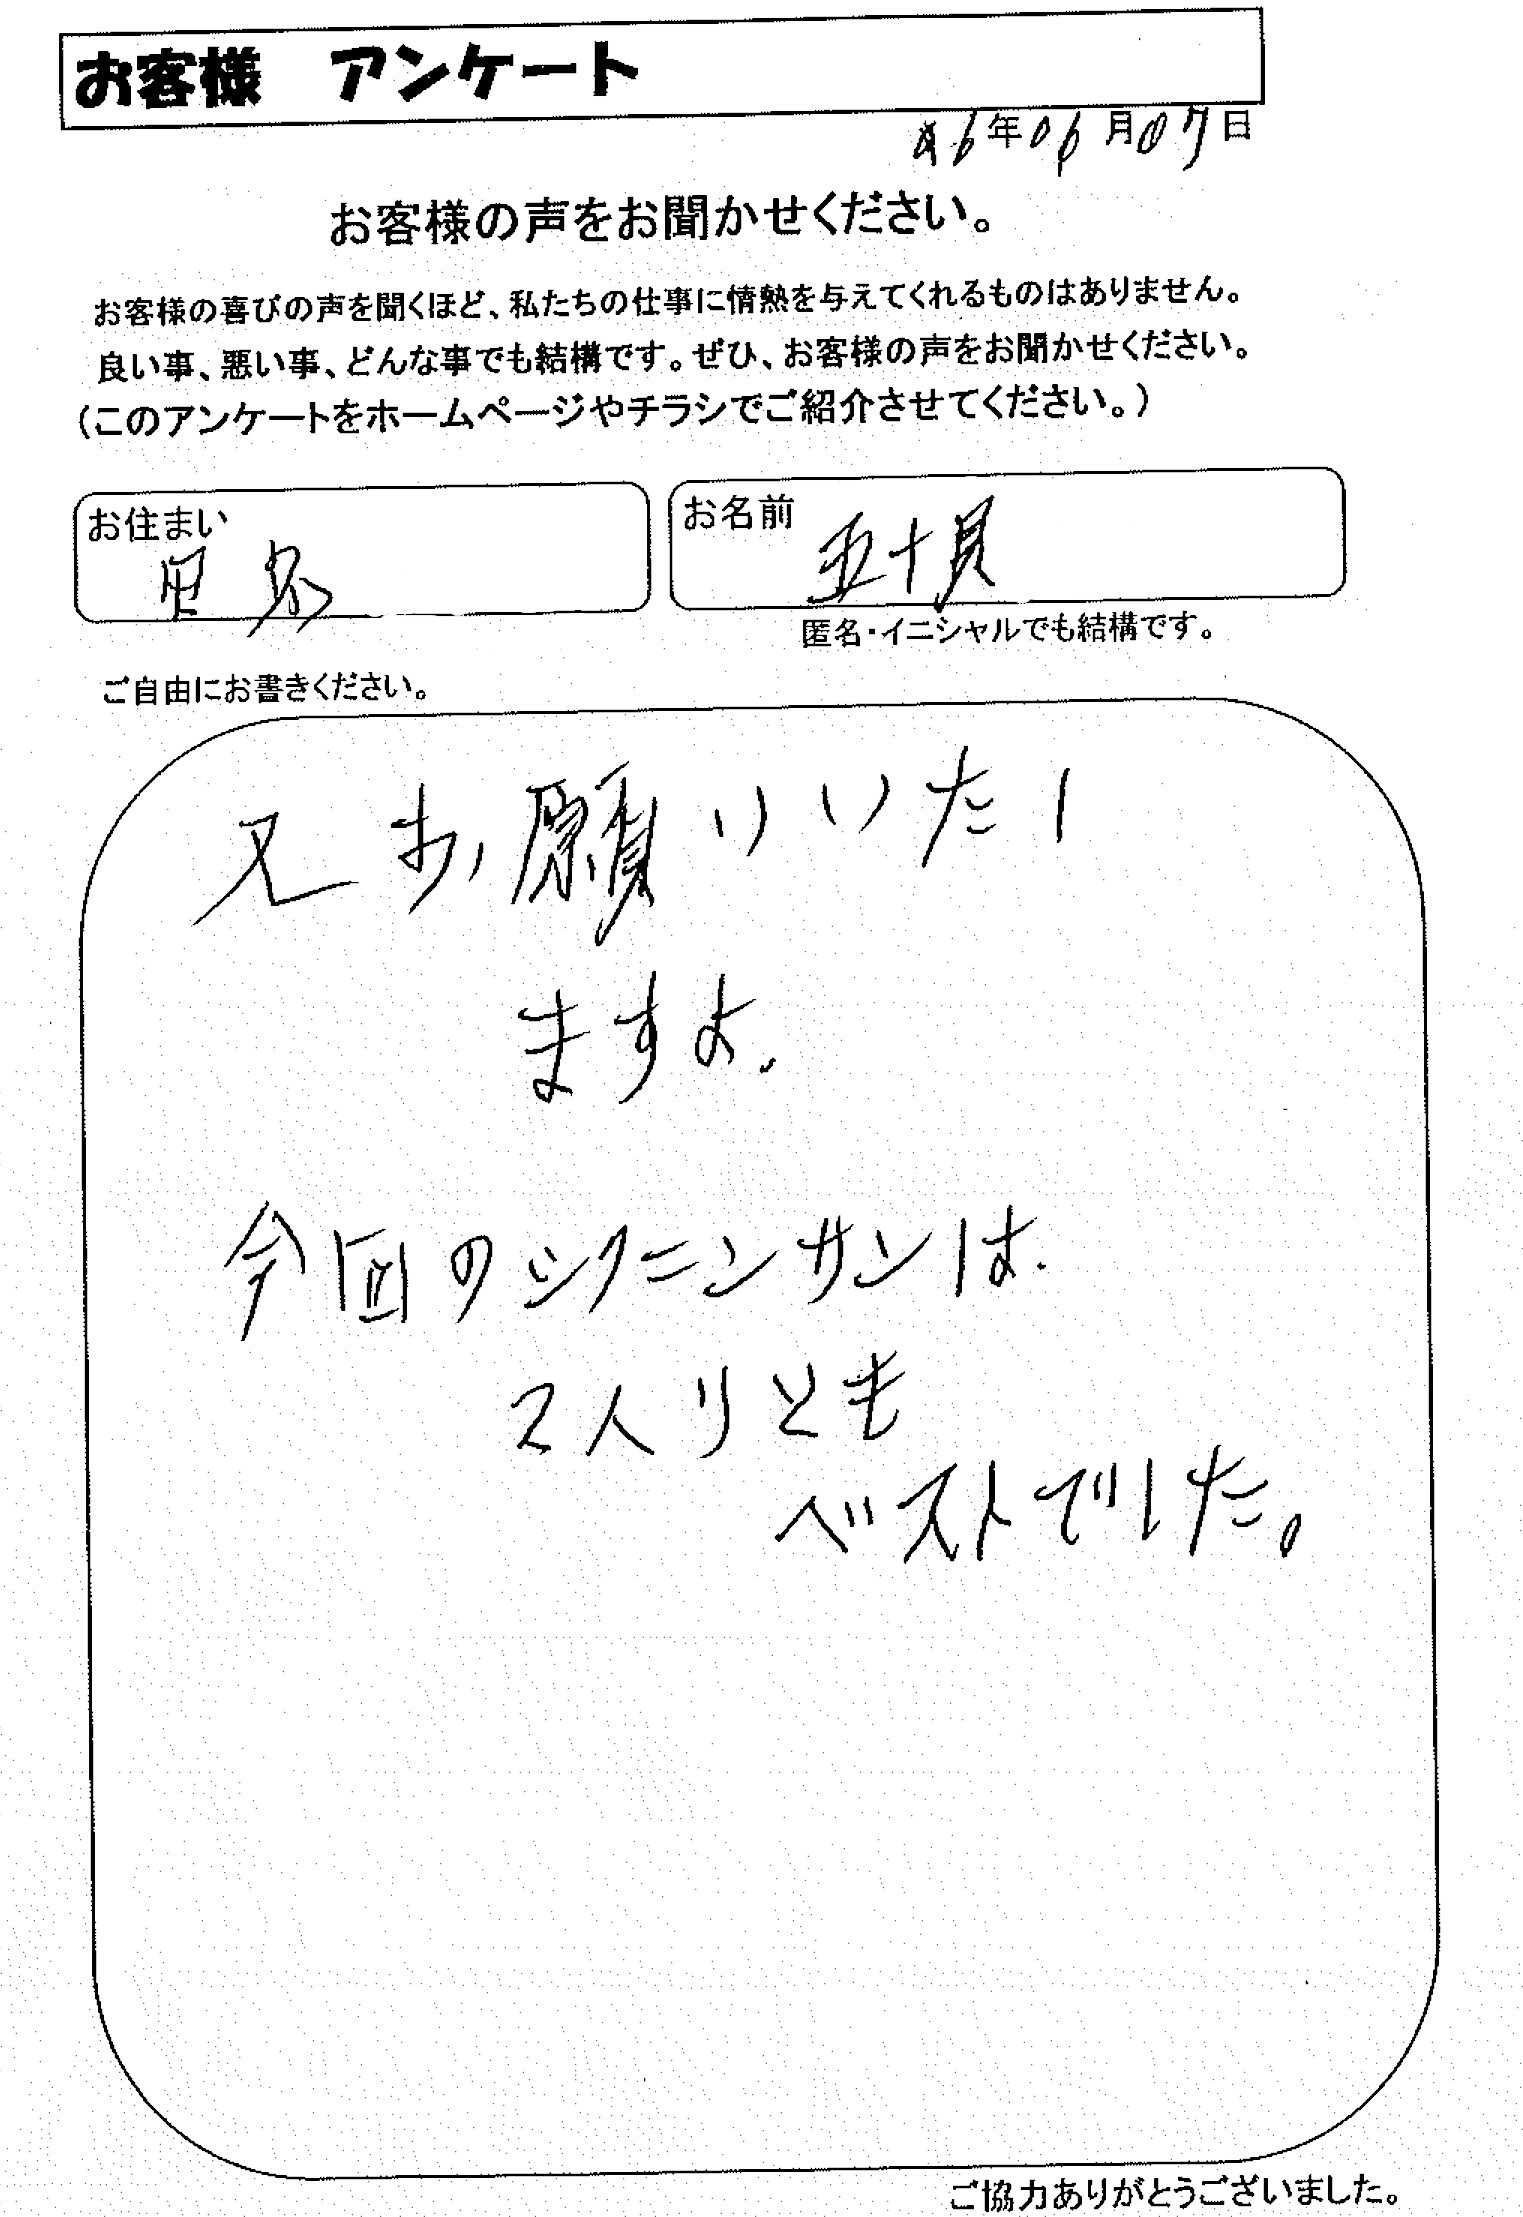 お客様　アンケート
26年06月07日
お客様の声をお聞かせください。
お客様の喜びの声を聞くほど、私たちの仕事に情熱を与えてくれるものはありません。
良い事、悪い事、どんな事でも結構です。ぜひ、お客様の声をお聞かせください。
(このアンケートをホームページやチラシでご紹介させてください。)
お住まい
お名前
五十貝
匿名・イニシャルでも結構です。
ご自由にお書きください。
又お願いいたし
ますよ.
今回のシクニンサンは.
2人りとも
ベストでした。
ご協力ありがとうございました。